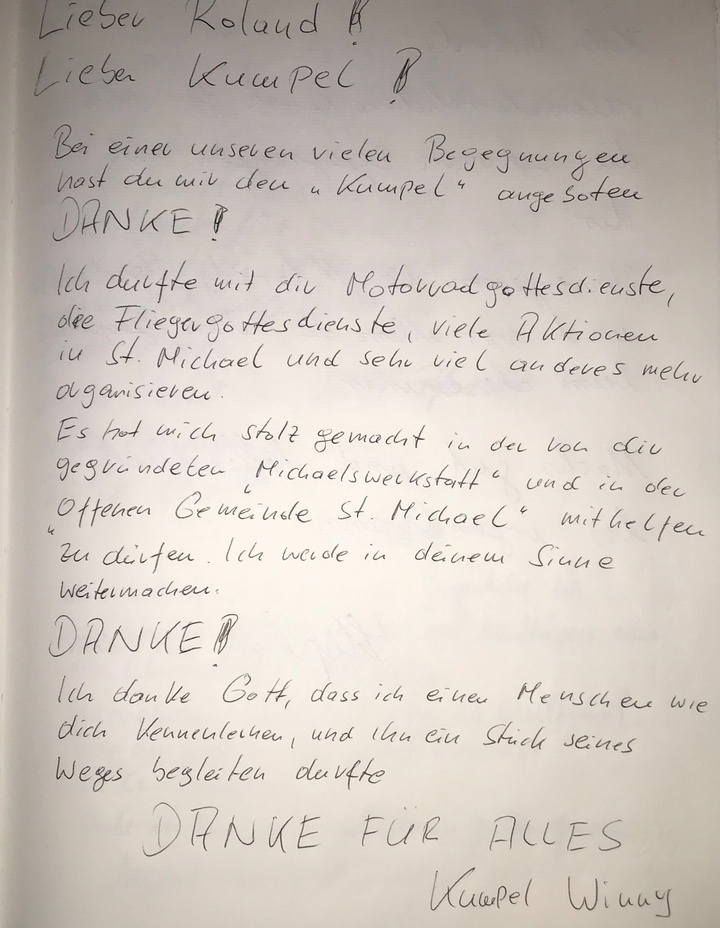 Lieber Roland!
Lieber Kumpel!
Bei einer unseren vielen Begegnungen
hast du mir den „Kumpel“ angeboten
DANKE!
Ich durfte mit dir Motorradgottesdienste,
die Fliegergottesdienste, viele Aktionen
in St. Michael und sehr viel anderes mehr
organisieren.
Es hat mich stolz gemacht in der von dir
gegründeten „Michaelswerkstatt“ und in der
„Offenen Gemeinde St. Michael“ mithelfen
zu dürfen. Ich werde in deinem Sinne
weitermachen.
DANKE!
Ich danke Gott, dass ich einen Menschen wie
dich kennenlernen, und ihn ein Stück seines
Weges begleiten durfte
DANKE FÜR ALLES
Kumpel Winny